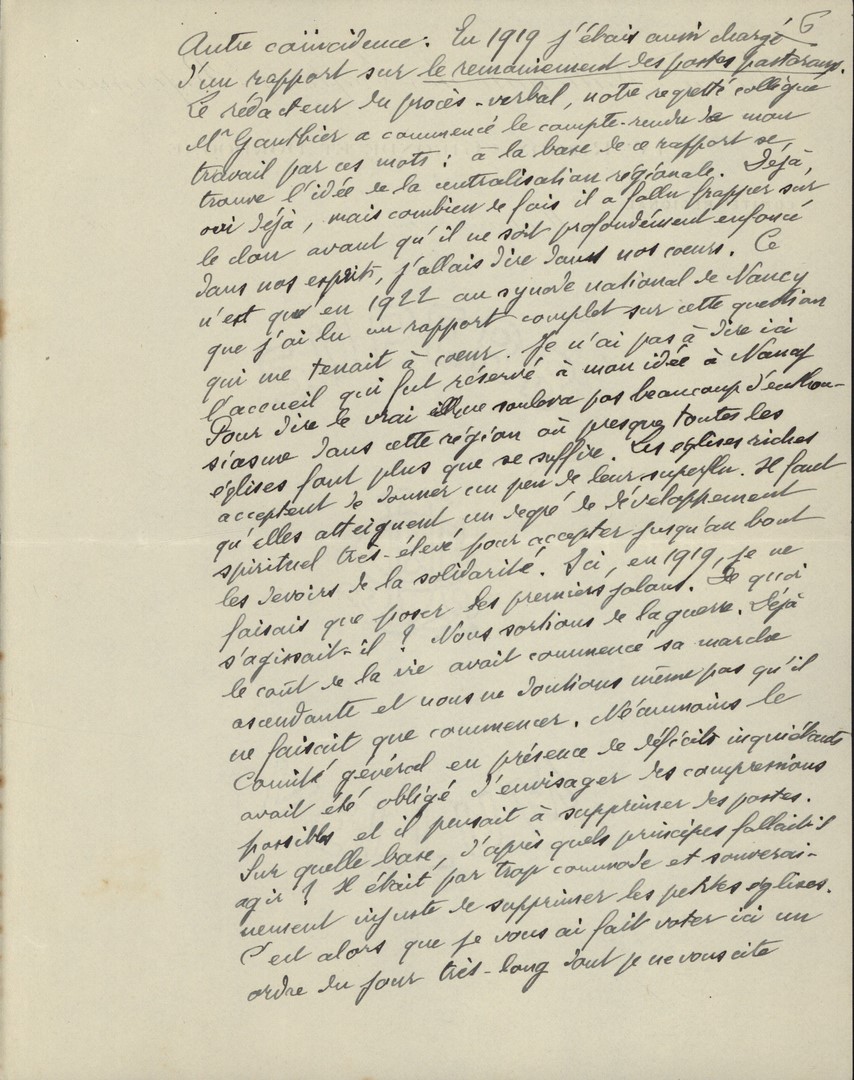 6
Autre coïncidence. En 1919 j'étais aussi chargé
d'un rapport sur le remaniement des postes pastoraux.
Le rédacteur du procès-verbal, notre regretté collègue
Mr Gauthier a commencé le compte-rendu de mon
travail par ces mots : à la base de ce rapport se
trouve l'idée de la centralisation régionale. Déjà,
oui déjà, mais combien de fois il a fallu frapper sur
le clou avant qu'il ne soit profondément enfoncé
dans nos esprits, j'allais dire dans nos coeurs. Ce
n'est que en 1922 au synode national de Nancy
que j'ai lu un rapport complet sur cette question
qui me tenait à coeur. Je n'ai pas à dire ici
l'accueil qui fut réservé à mon idée à Nancy
Pour dire le vrai elle ne souleva pas beaucoup d'enthou-
siasme dans cette région où presque toutes les
églises font plus que se suffire. Les églises riches
acceptent de donner un peu de leur superflu. Il faut
qu'elles atteignent un degré de développement
spirituel très-élevé pour accepter jusqu'au bout
les devoirs de la solidarité. Ici, en 1919, je ne
faisais que poser les premiers jalons. De quoi
s'agissait-il ? Nous sortions de la guerre. Déjà
le coût de la vie avait commencé sa marche
ascendante et nous ne doutions même pas qu'il
ne faisait que commencer. Néanmoins le
Comité général en présence de déficits inquiétants
avait été obligé d'envisager des compressions
possibles et il pensait à supprimer des postes.
Sur quelle base, d'après quels principes fallait-il
agir ? Il était par trop commode et souverai-
nement injuste de supprimer les petites églises.
C'est alors que je vous ai fait voter ici un
ordre du jour très-long dont je ne vous cite